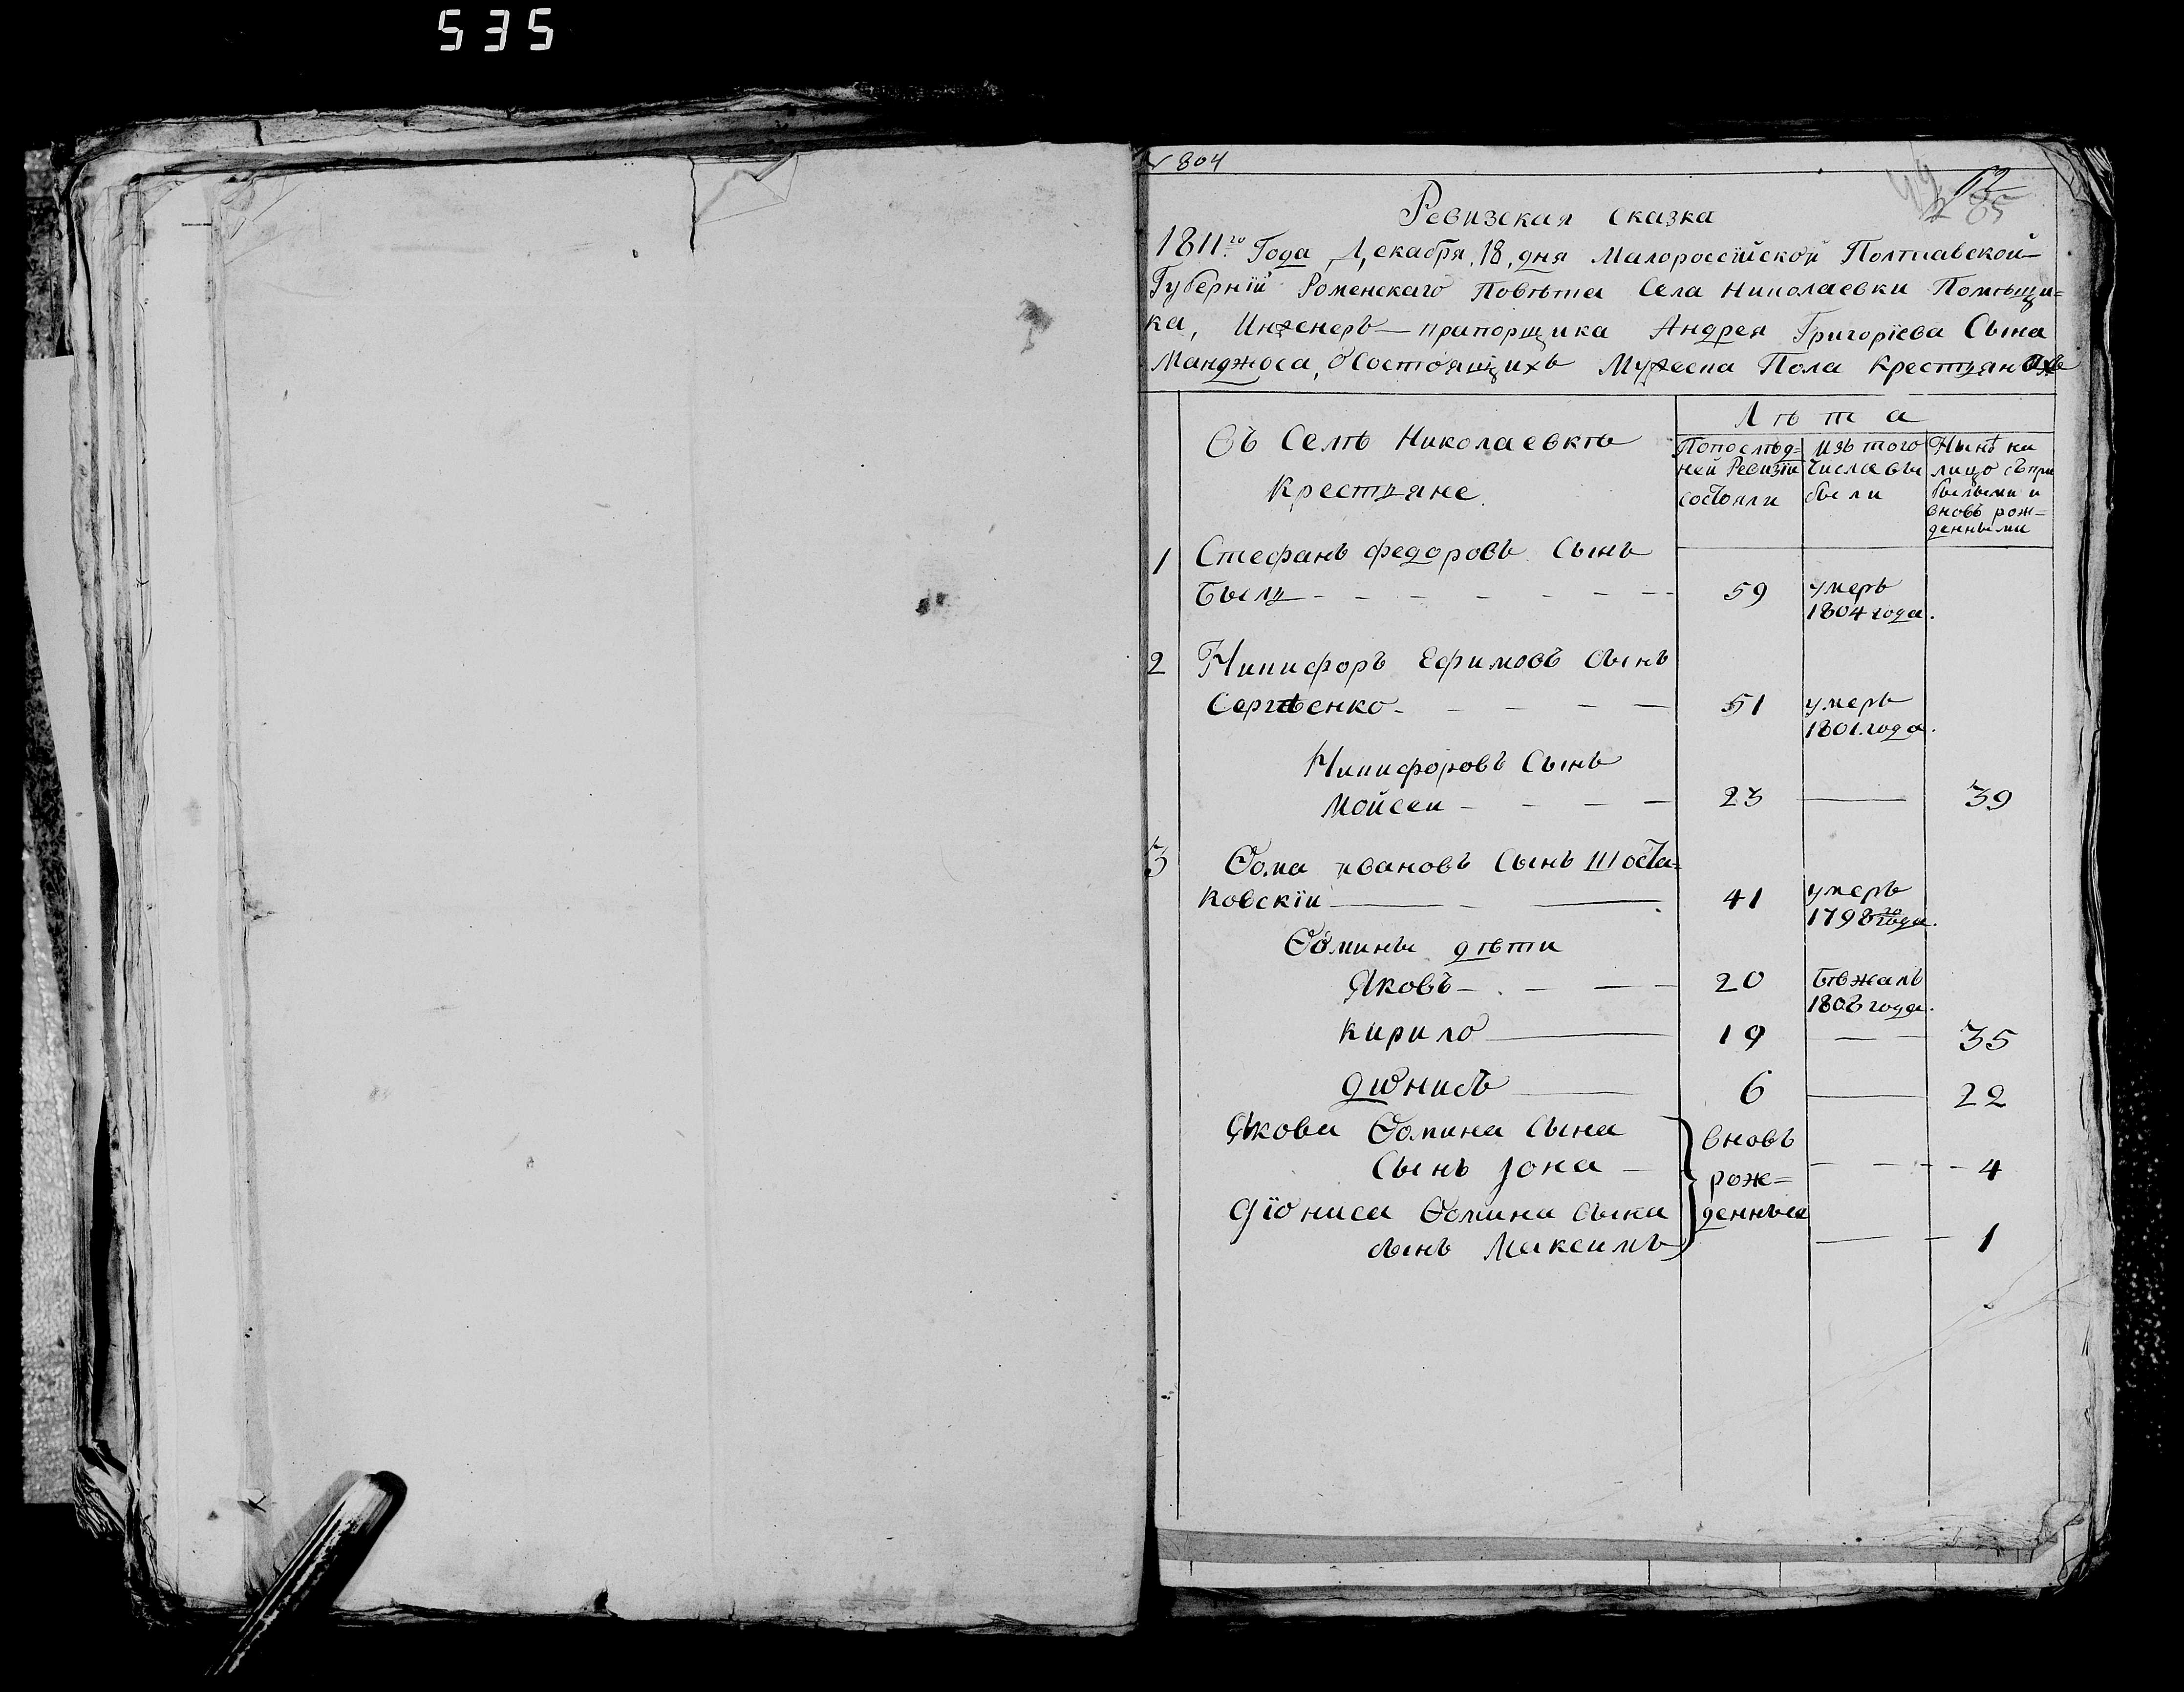 535
804
85
Ревизская сказка
1811го Года Декабря, 18, дня Малороссійской Полтавской
Губерніи Роменскаго Повѣта Села Николаевки Помѣщи=
ка, Инженеръ-прапорщика Андрея Григоріева Сына
Манджоса, о состоящихъ Мужеска Пола Крестьянахъ
Лѣта
Въ Селѣ Николаевкѣ
Крестьяне.
Попослѣд=
ней Ревизіи
состояли
Изъ того
числа вы
были
Нынѣ на
лицо съ при
былыми и
вновь рож=
денными
1 Стефанъ Федоровъ Сынъ
59 умеръ
1804 года.
2 Никифоръ Ефимовъ сынъ
Сергѣенко 51 умеръ
1801. года.
Никифоровъ Сынъ
Мойсей 23 39
3 Ѳома Ивановъ Сынъ Шоста=
ковскій 41 умеръ
1798го года.
Ѳомины дѣти
Яковъ 20 бѣжалъ
1808 года.
Кирило 19 35
Діонисъ 6 22
Якова Ѳомина Сына
Сынъ Іона 4
Діониса Ѳомина сына
сынъ Максимъ 1
вновь
рож=
денныя